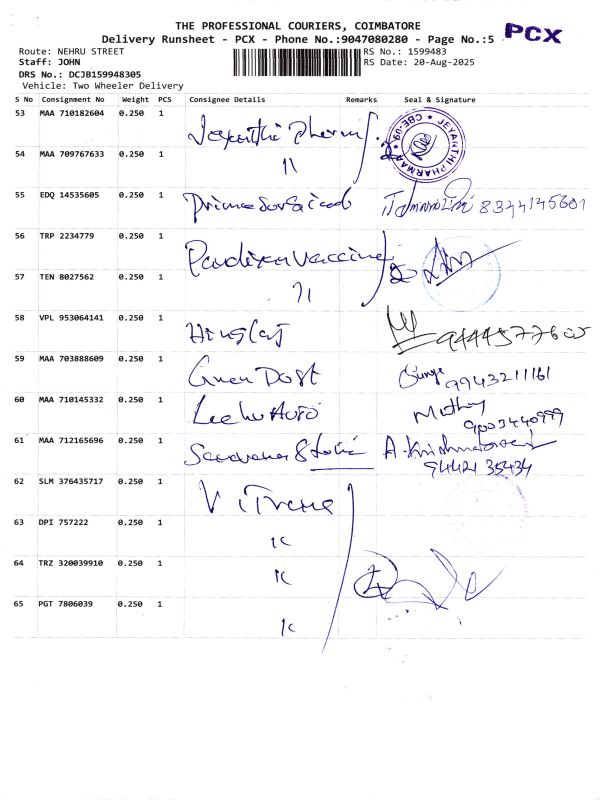 THE PROFESSIONAL COURIERS, COIMBATORE
Delivery Runsheet - PCX - Phone No.:9047080280 - Page No.:5
PCX
Route: NEHRU STREET
RS No.: 1599483
Staff: JOHN
RS Date: 20-Aug-2025
DRS No.: DCJB159948305
Vehicle: Two Wheeler Delivery
S No Consignment No Weight PCS Consignee Details Remarks Seal & Signature
53 MAA 710182604 0.250 1 Jeyanthi Pharm
JEYANTHI PHARMA CBE-09
54 MAA 709767633 0.250 1 11 2
55 EDQ 14535605 0.250 1 Prime Surgical 8344145601
56 TRP 2234779 0.250 1 Pandian Vaccine
57 TEN 8027562 0.250 1 11 2
58 VPL 953064141 0.250 1 Hinglaj
59 MAA 703888609 0.250 1 Green Dost 9943211161
60 MAA 710145332 0.250 1 Auto Muthu 9003440999
61 MAA 712165696 0.250 1 Saravana A. Krishna
94421 35434
62 SLM 376435717 0.250 1 V
63 DPI 757222 0.250 1 1c
64 TRZ 320039910 0.250 1 1c 4
65 PGT 7806039 0.250 1 1c